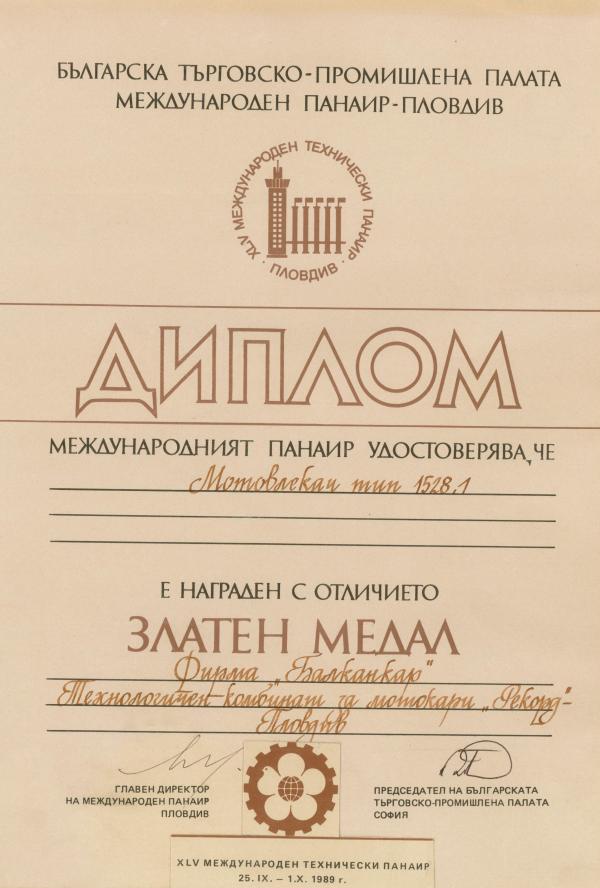 БЪЛГАРСКА ТЪРГОВСКО-ПРОМИШЛЕНА ПАЛАТА
МЕЖДУНАРОДЕН ПАНАИР-ПЛОВДИВ
XLV МЕЖДУНАРОДЕН ТЕХНИЧЕСКИ ПАНАИР · ПЛОВДИВ ·
ДИПЛОМ
МЕЖДУНАРОДНИЯТ ПАНАИР УДОСТОВЕРЯВА, ЧЕ
Мотовлекач тип 1528.1
Е НАГРАДЕН С ОТЛИЧИЕТО
ЗЛАТЕН МЕДАЛ
Фирма „Балканкар"
Технологичен комбинат за мотокари „Рекорд"-
Пловдив
ГЛАВЕН ДИРЕКТОР
НА МЕЖДУНАРОДЕН ПАНАИР
ПЛОВДИВ
ПРЕДСЕДАТЕЛ НА БЪЛГАРСКАТА
ТЪРГОВСКО-ПРОМИШЛЕНА ПАЛАТА
СОФИЯ
XLV МЕЖДУНАРОДЕН ТЕХНИЧЕСКИ ПАНАИР
25. IX. – 1.X. 1989 г.